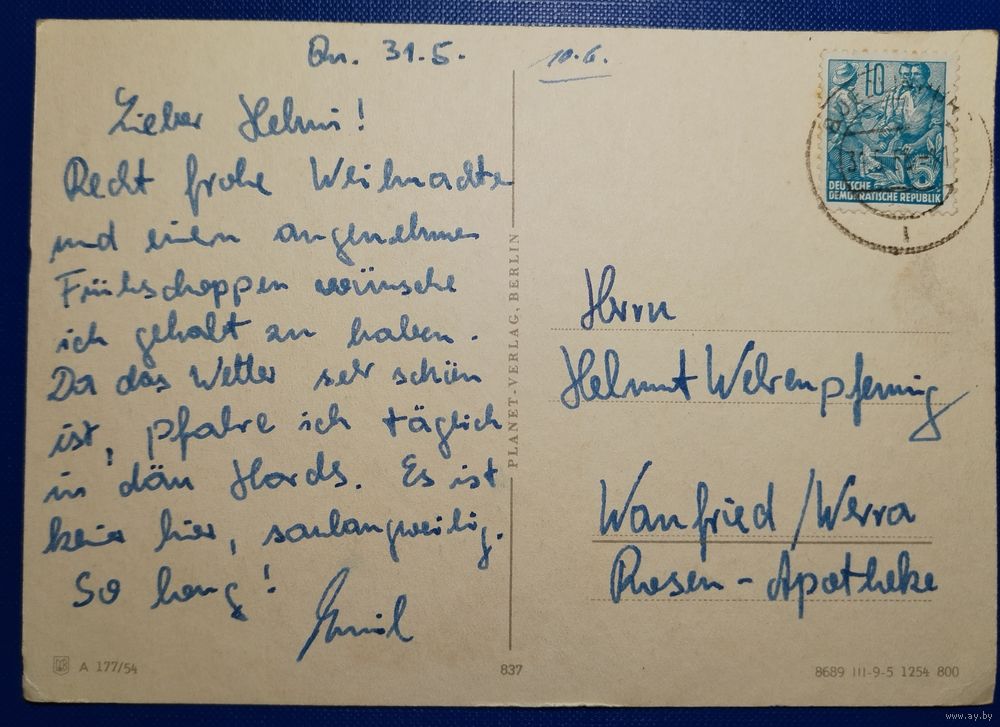 Qu. 31.5.
10.6.
Lieber Helmi!
Recht frohe Weihnachten
und einen angenehmen
Frühschoppen wünsche
ich gehabt zu haben.
Da das Wetter sehr schön
ist, pfahre ich täglich
in dän Hards. Es ist
keiner hier, saulangweilig.
So long!
Emil
10
DEUTSCHE
DEMOKRATISCHE REPUBLIK
PLANET-VERLAG, BERLIN
Herrn
Helmut Wehrenpfennig
Wanfried/Werra
Rosen-Apotheke
A 177/54
837
8689 III-9-5 1254 800
www.ay.by